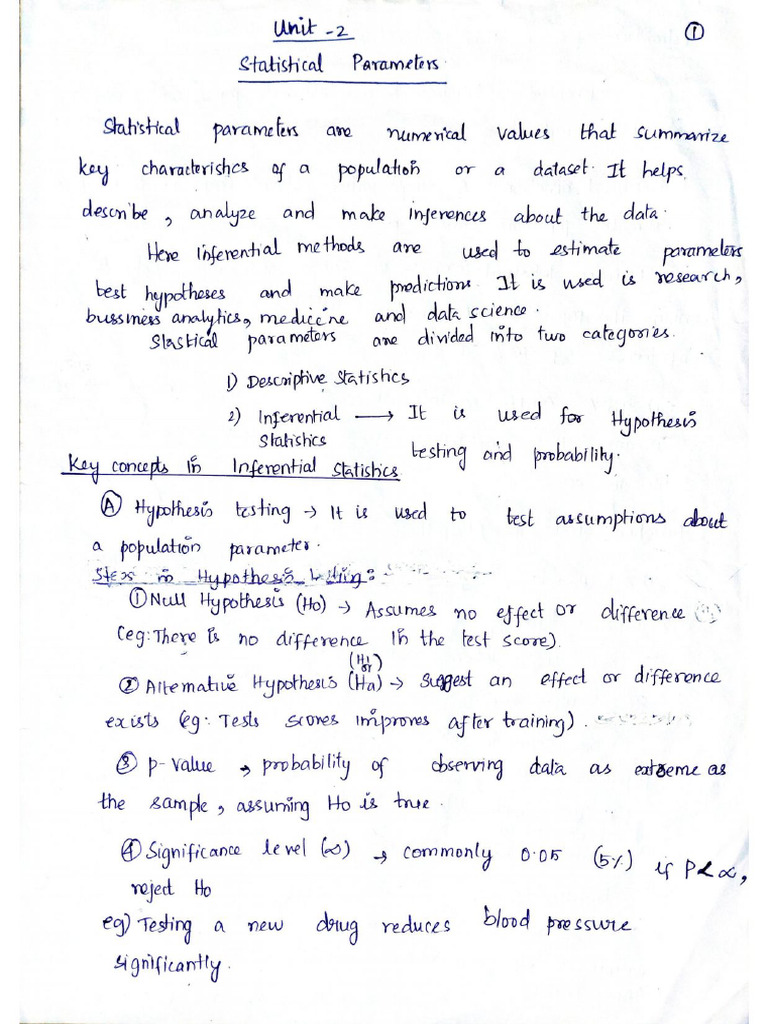 Unit -2
①
Statistical Parameters
Statistical parameters are numerical values that summarize
key characteristics of a population or a dataset. It helps
describe, analyze and make inferences about the data.
Here inferential methods are used to estimate parameters
best hypotheses and make predictions. It is used is research,
bussiness analytics, medicine and data science.
Slastical parameters are divided into two categories.
1) Descriptive Statistics
2) Inferential → It is used for Hypothesis
Statistics testing and probability.
Key concepts in Inferential Statistics
Ⓐ Hypothesis testing → It is used to best assumptions about
a population parameter.
Steps in Hypothesis testing:
① Null Hypothesis (Ho) → Assumes no effect or difference
(eg: There is no difference in the test score).
(H1
or)
② Alternative Hypothesis (Ha) → Suggest an effect or difference
exists (eg: Tests scores improves after training).
③ p-value → probability of observing data as extreme as
the sample, assuming Ho is true.
④ Significance level (∝) → commonly 0.05 (5%) if P<∝,
reject Ho
eg) Testing a new drug reduces blood pressure
significantly.